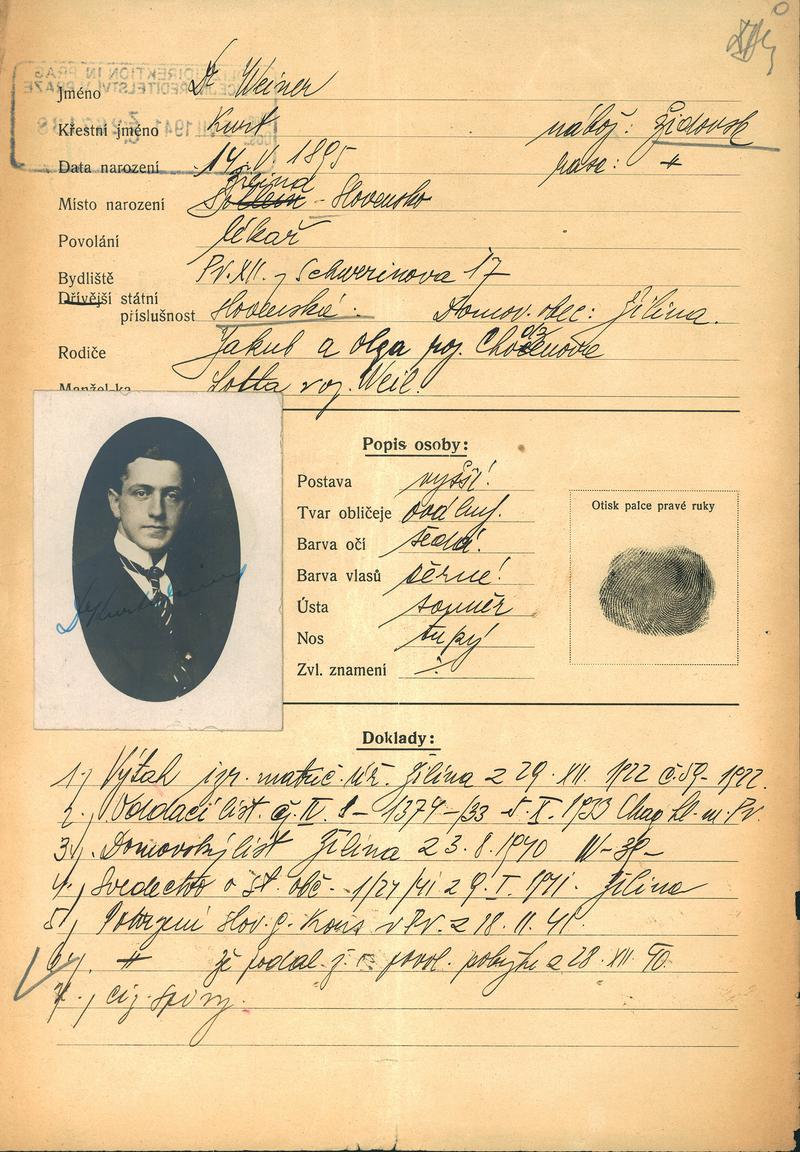 Jméno Dr. Weiner
Křestní jméno Kurt nábož: židovsk
Data narození 14. V. 1895 rasa: "
Místo narození Žilina - Slovensko
Povolání lékař
Bydliště Pr. XII. Schwerinova 17
Dřívější státní
příslušnost slovenská. Domov. obec: Žilina.
Rodiče Jakub a Olga roz.
Manžel-ka Lotta roz. Weil.
Popis osoby:
Postava vyšší
Tvar obličeje
Barva očí šedá
Barva vlasů černé
Ústa souměr
Nos tupý
Zvl. znamení
Otisk palce pravé ruky
Doklady:
1.) Výtah izr. matrič. úř. Žilina z 29. XII. 1922 č. 59-1922.
2.) Oddací list čj. IV. 8-1374-/33 5. X. 1933
3.) Domovský list Žilina z 3. 8. 1940
4.) Svedectvo o st. obč. 1/27/41 z 9. I. 1941. Žilina
5.) Potvrzení slov. g. kons v Pr. z 18. 11. 41.
6.) " že podal ž. o povol. pobytu z 28. XII. 40.
7.)